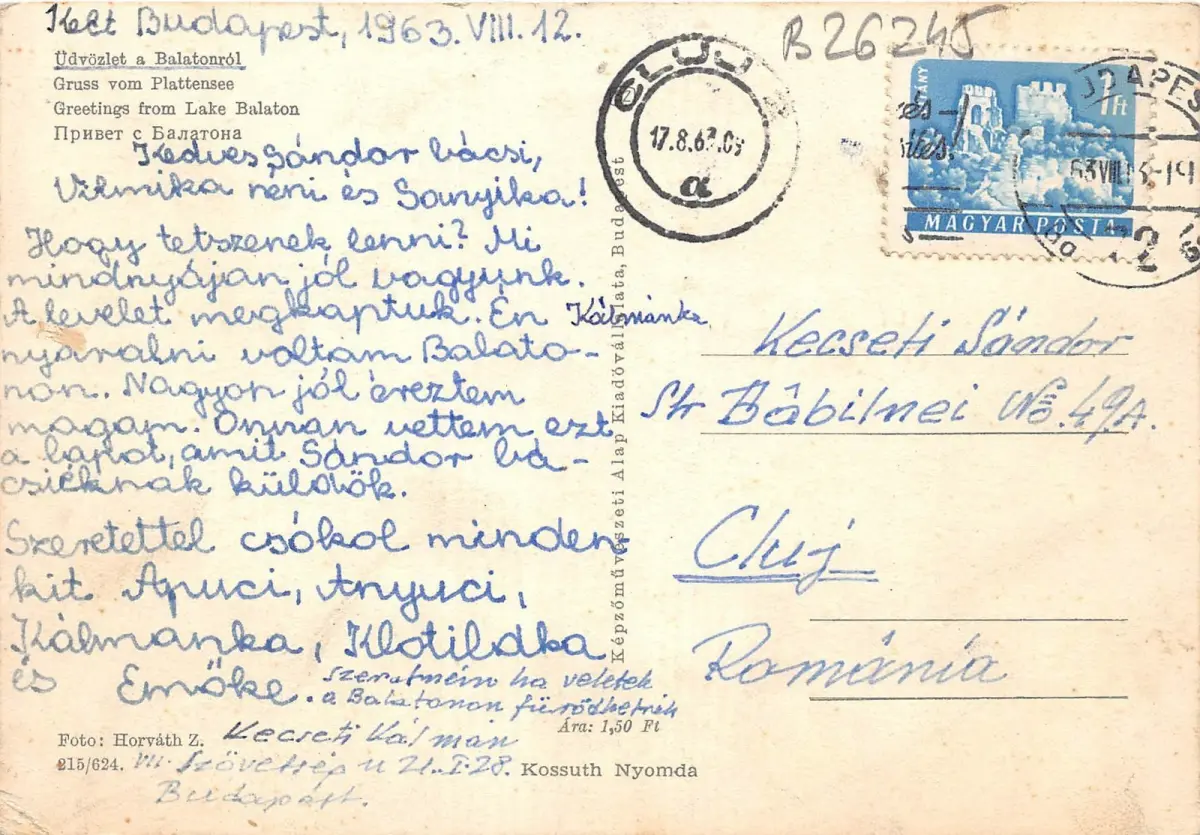 Kelt Budapest, 1963. VIII. 12.
B26245
Üdvözlet a Balatonról
Gruss vom Plattensee
Greetings from Lake Balaton
Привет с Балатона
Kedves Sándor bácsi,
Vilmika néni és Sanyika!
Hogy tetszenek lenni? Mi
mindnyájan jól vagyunk.
A levelet megkaptuk. Én Kálmánka
nyaralni voltam Balato-
non. Nagyon jól éreztem
magam. Onnan vettem ezt
a lapot, amit Sándor bá-
csiéknak küldök.
Szeretettel csókol minden-
kit Apuci, Anyuci,
Kálmánka, Klotildka
és Emőke.
Szeretném ha veletek
a Balatonon fürödhetnék
Kecseti Kálmán
VII. Szövetség u 21. I. 28.
Budapest.
Foto: Horváth Z.
215/624.
Ára: 1,50 Ft
Kossuth Nyomda
Képzőművészeti Alap Kiadóvállalata, Budapest
CLUJ
17.8.63.09
a
1 Ft
MAGYAR POSTA
BUDAPEST
63 VIII 13-19
72
Kecseti Sándor
Str Băbilnei No. 49A.
Cluj
Románia